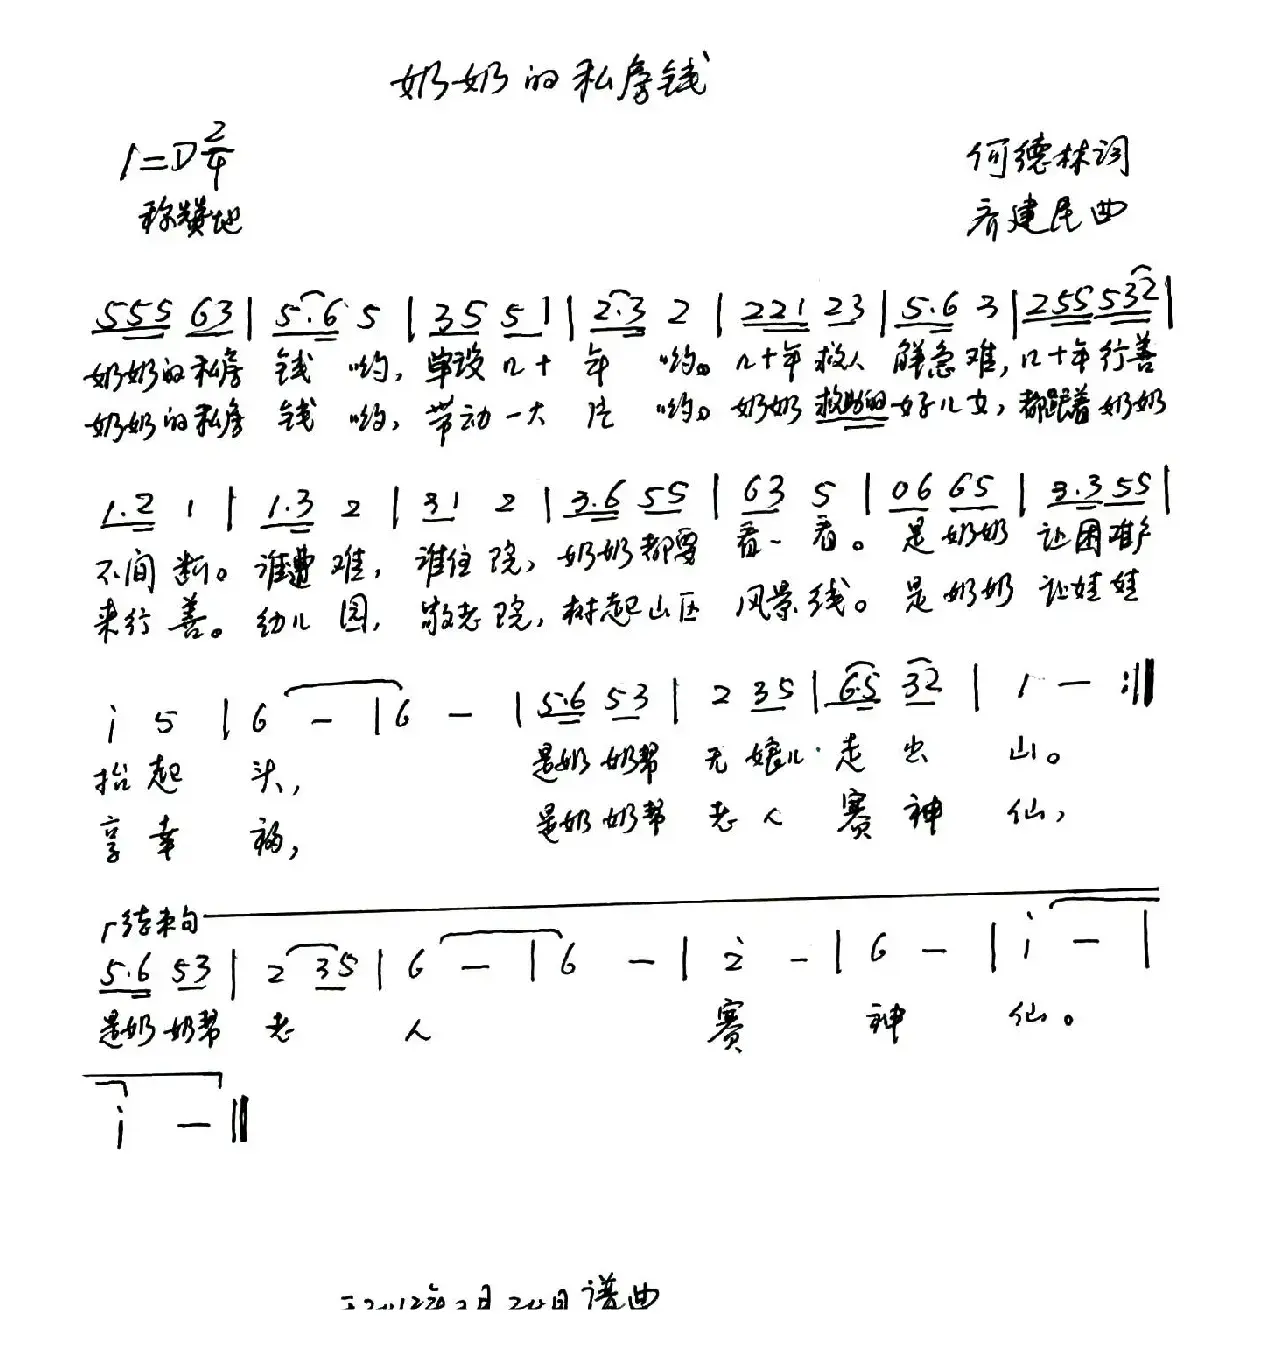 奶奶的私房钱
1=D 2/4
何德林词
称赞地
齐建民曲
555 63 | 5.6 5 | 35 51 | 2.3 2 | 221 23 | 5.6 3 | 255 532 |
奶奶的私房 钱 哟, 单设几十 年 哟。几十年救人 解急难, 几十年行善
奶奶的私房 钱 哟, 带动一大 片 哟。奶奶救助的好儿女, 都跟着奶奶
1.2 1 | 1.3 2 | 31 2 | 3.6 55 | 63 5 | 06 65 | 3.3 55 |
不间断。谁遭难, 谁住院, 奶奶都要看一看。是奶奶 让困难户
来行善。幼儿园, 敬老院, 树起山区 风景线。是奶奶 让娃娃
i 5 | 6 - | 6 - | 5.6 53 | 2 35 | 6.5 32 | 1 - :||
抬起 头, 是奶奶帮 无娘儿 走出 山。
享幸 福, 是奶奶帮 老人 赛神 仙,
结束句
5.6 53 | 2 35 | 6 - | 6 - | 2̇ - | 6 - | i - |
是奶奶帮 老 人 赛 神 仙。
i - ||
2012年 月 日谱曲